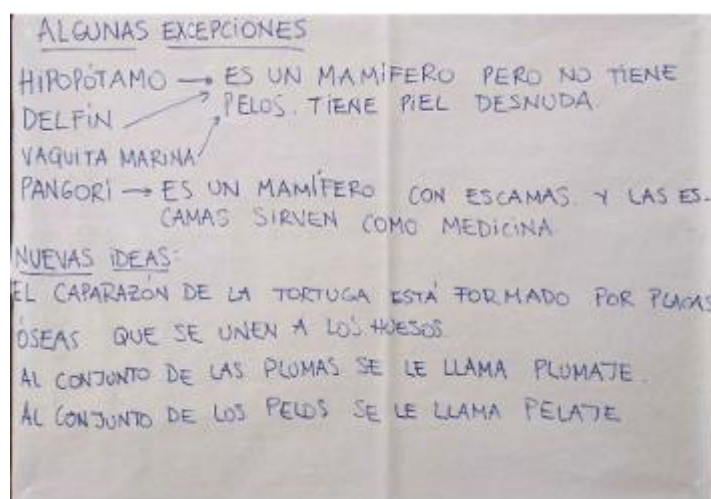 ALGUNAS EXCEPCIONES
HIPOPÓTAMO → ES UN MAMÍFERO PERO NO TIENE
DELFÍN PELOS. TIENE PIEL DESNUDA.
VAQUITA MARINA
PANGORÍ → ES UN MAMÍFERO CON ESCAMAS Y LAS ES-
CAMAS SIRVEN COMO MEDICINA
NUEVAS IDEAS:
EL CAPARAZÓN DE LA TORTUGA ESTÁ FORMADO POR PLACAS
ÓSEAS QUE SE UNEN A LOS HUESOS.
AL CONJUNTO DE LAS PLUMAS SE LE LLAMA PLUMAJE.
AL CONJUNTO DE LOS PELOS SE LE LLAMA PELAJE